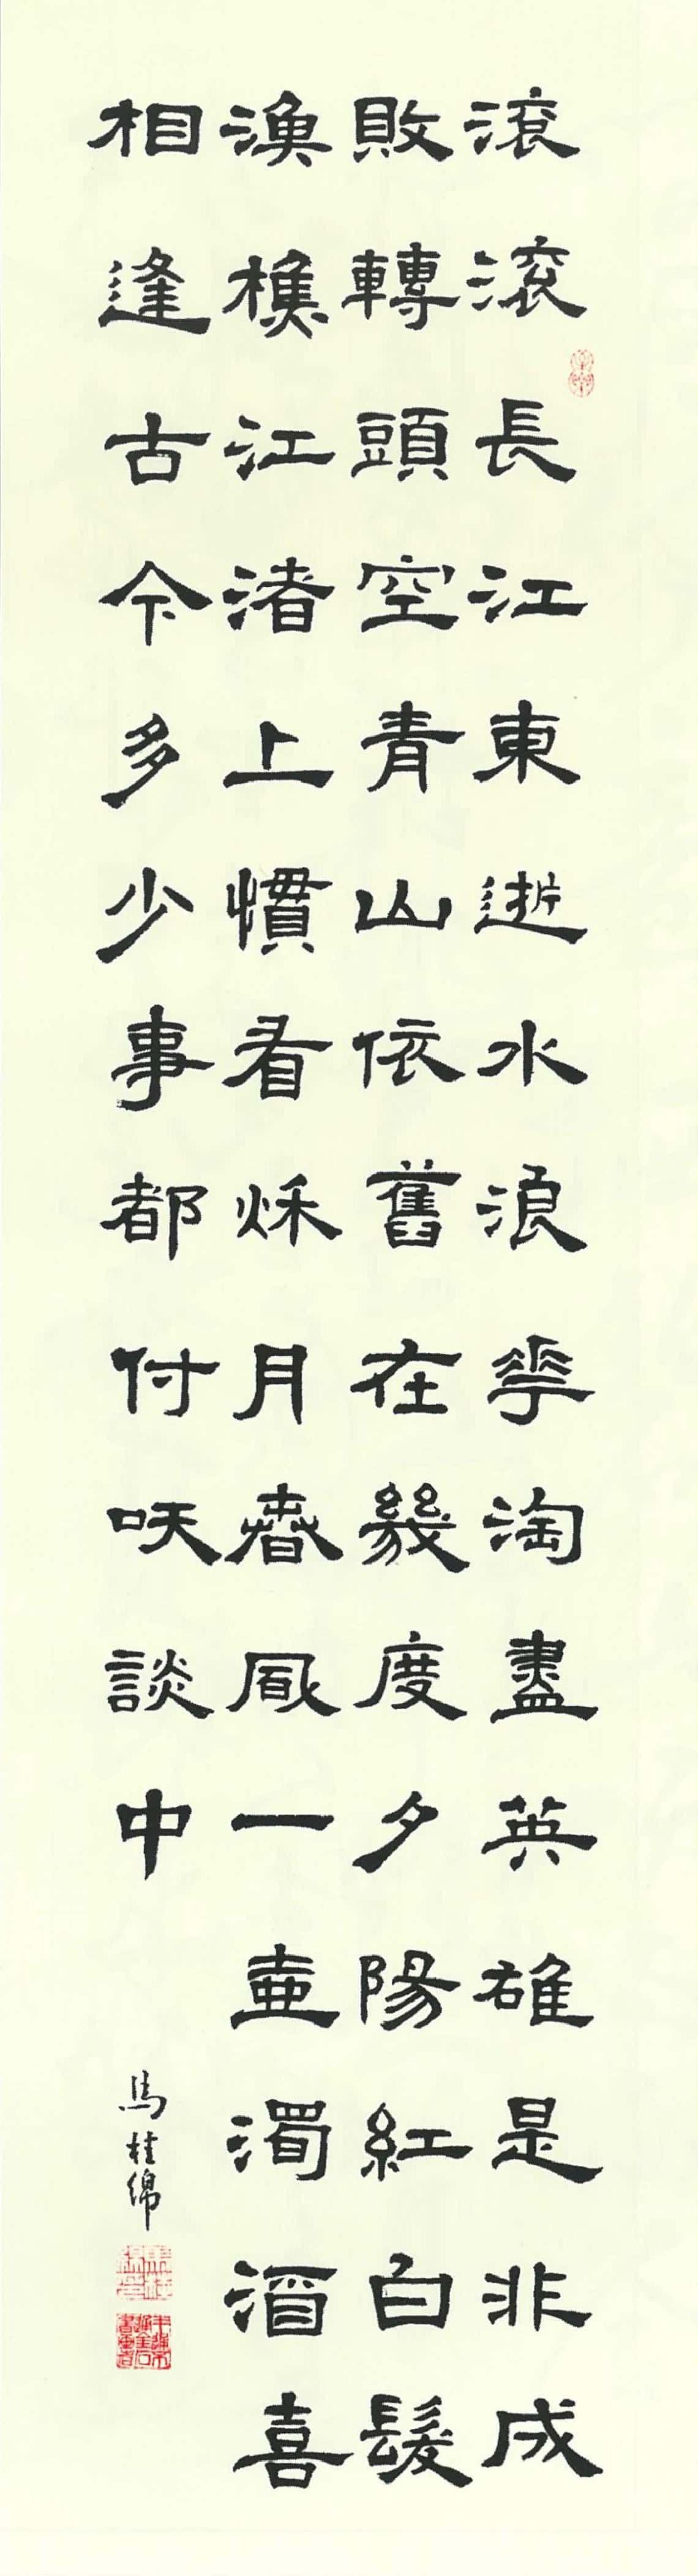 滾滾長江東逝水浪花淘盡英雄是非成
敗轉頭空青山依舊在幾度夕陽紅白髮
漁樵江渚上慣看秌月春風一壺濁酒喜
相逢古今多少事都付咲談中
馬桂绵